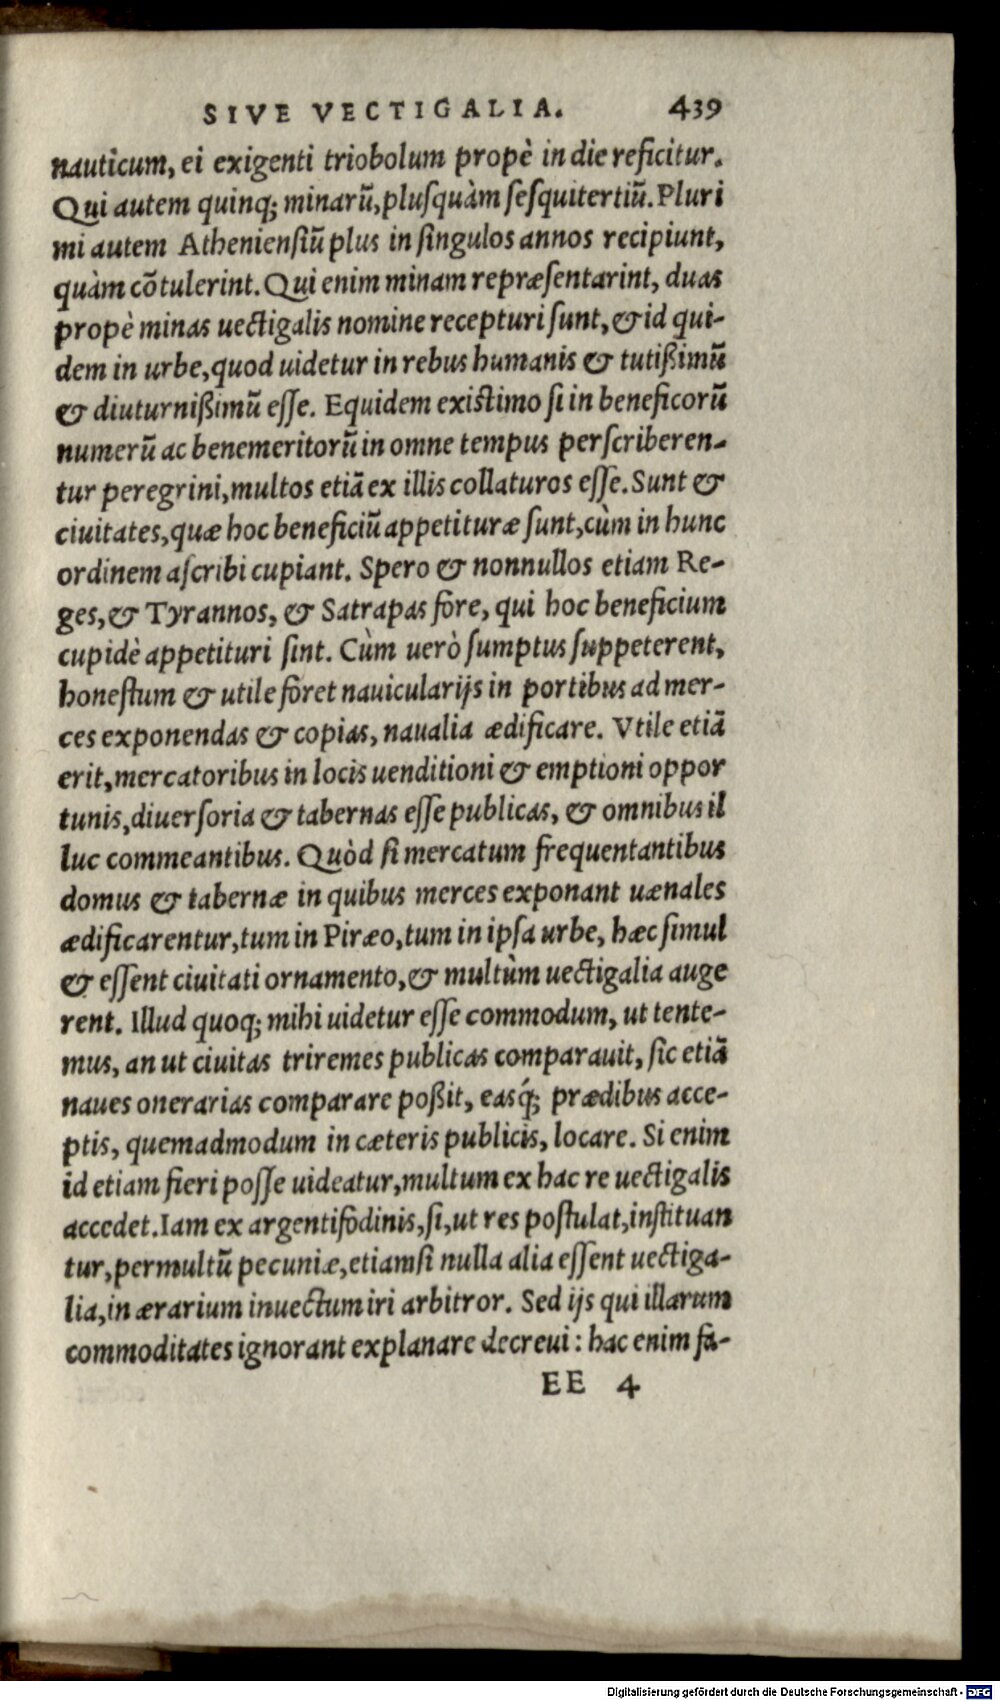 SIVE VECTIGALIA. 439
nauticum, ei exigenti triobolum propè in die reficitur.
Qui autem quinq; minarũ, plusquàm sesquitertiũ. Pluri
mi autem Atheniensiũ plus in singulos annos recipiunt,
quàm cõtulerint. Qui enim minam repræsentarint, duas
propè minas uectigalis nomine recepturi sunt, & id qui-
dem in urbe, quod uidetur in rebus humanis & tutißimũ
& diuturnißimũ esse. Equidem existimo si in beneficorũ
numerũ ac benemeritorũ in omne tempus perscriberen-
tur peregrini, multos etiã ex illis collaturos esse. Sunt &
ciuitates, quæ hoc beneficiũ appetituræ sunt, cùm in hunc
ordinem ascribi cupiant. Spero & nonnullos etiam Re-
ges, & Tyrannos, & Satrapas fore, qui hoc beneficium
cupidè appetituri sint. Cùm uerò sumptus suppeterent,
honestum & utile foret nauicularijs in portibus ad mer-
ces exponendas & copias, naualia ædificare. Vtile etiã
erit, mercatoribus in locis uenditioni & emptioni oppor
tunis, diuersoria & tabernas esse publicas, & omnibus il
luc commeantibus. Quòd si mercatum frequentantibus
domus & tabernæ in quibus merces exponant uænales
ædificarentur, tum in Piræo, tum in ipsa urbe, hæc simul
& essent ciuitati ornamento, & multùm uectigalia auge
rent. Illud quoq; mihi uidetur esse commodum, ut tente-
mus, an ut ciuitas triremes publicas comparauit, sic etiã
naues onerarias comparare poßit, easq́; prædibus acce-
ptis, quemadmodum in cæteris publicis, locare. Si enim
id etiam fieri posse uideatur, multum ex hac re uectigalis
accedet. Iam ex argentifodinis, si, ut res postulat, instituan
tur, permultũ pecuniæ, etiamsi nulla alia essent uectiga-
lia, in ærarium inuectum iri arbitror. Sed ijs qui illarum
commoditates ignorant explanare decreui: hac enim fa-
EE 4
Digitalisierung gefördert durch die Deutsche Forschungsgemeinschaft - DFG